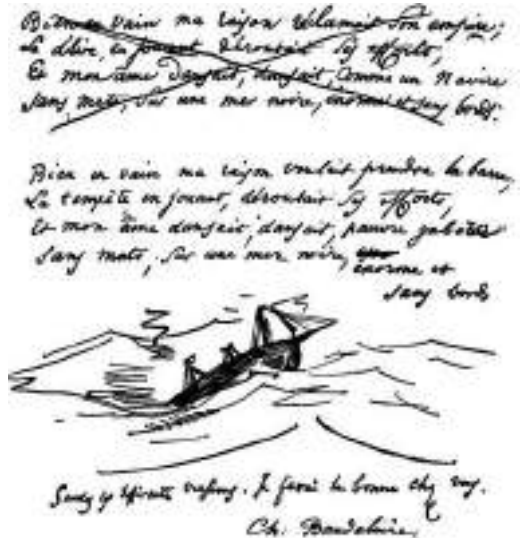 Bien en vain ma raison réclamait son empire;
Le délire, en jouant déroutait ses efforts,
Et mon âme dansait, dansait, comme un Navire
Sans mats, sur une mer noire, énorme et sans bords.
Bien en vain ma raison voulait prendre la barre,
La tempête en jouant, déroutait ses efforts,
Et mon âme dansait, dansait, pauvre gabarre
Sans mats, sur une mer noire, énorme et
sans bords
Je ferai la bonne chez vous.
Ch. Baudelaire.